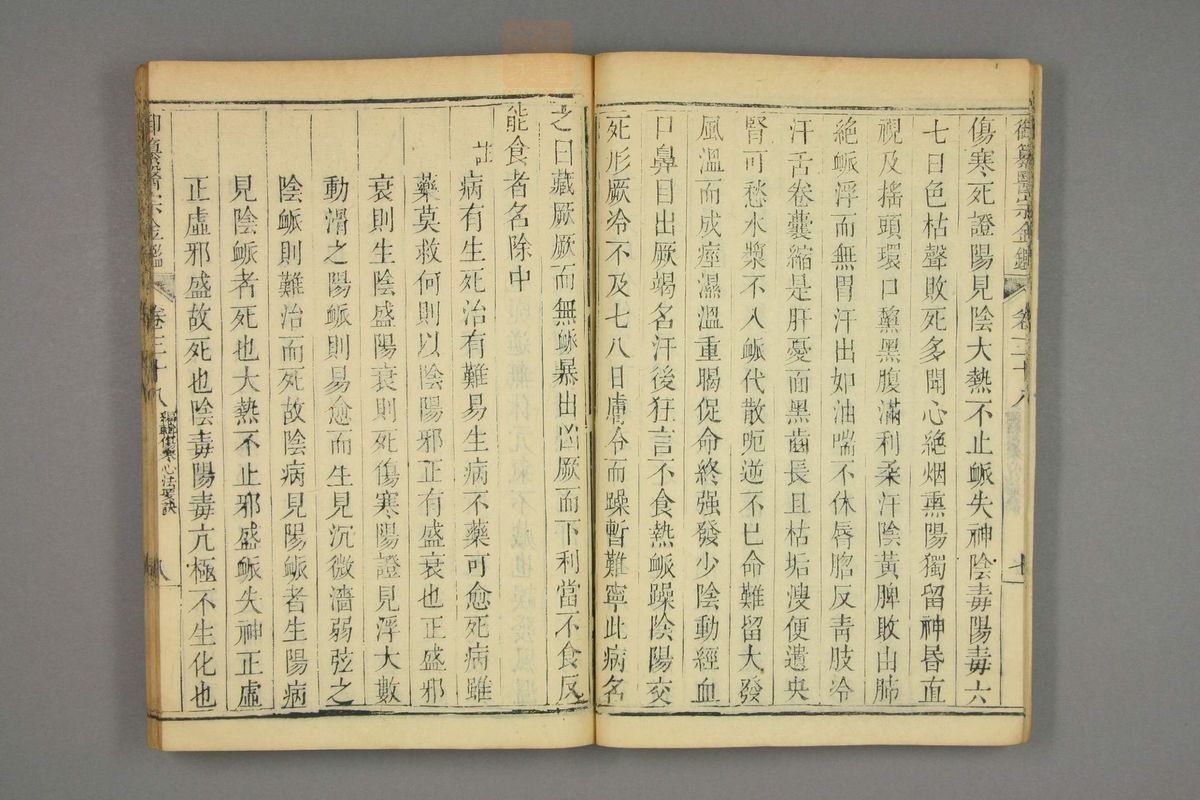 御纂醫宗金鑑 卷三十八 七
傷寒死證陽見陰大熱不止脈失神陰毒陽毒六
七日色枯聲敗死多聞心絶烟熏陽獨留神昏直
視及搖頭環口黧黑腹滿利柔汗陰黃脾敗由肺
絶脈浮而無胃汗出如油喘不休唇脗反青肢冷
汗舌卷囊縮是肝憂面黑齒長且枯垢溲便遺失
腎可愁水漿不入脈代散呃逆不已命難留大發
風溫而成痙濕溫重暍促命終强發少陰動經血
口鼻目出厥竭名汗後狂言不食熱脈躁陰陽交
死形厥冷不及七八日膚冷而躁暫難寧此病名
之曰藏厥厥而無脈暴出凶厥而下利當不食反
能食者名除中
註
病有生死治有難易生病不藥可愈死病雖
藥莫救何則以陰陽邪正有盛衰也正盛邪
衰則生陰盛陽衰則死傷寒陽證見浮大數
動滑之陽脈則易愈而生見沉微濇弱弦之
陰脈則難治而死故陰病見陽脈者生陽病
見陰脈者死也大熱不止邪盛脈失神正虛
正虛邪盛故死也陰毒陽毒亢極不生化也
御纂醫宗金鑑 卷三十八 編輯傷寒心法要訣 八